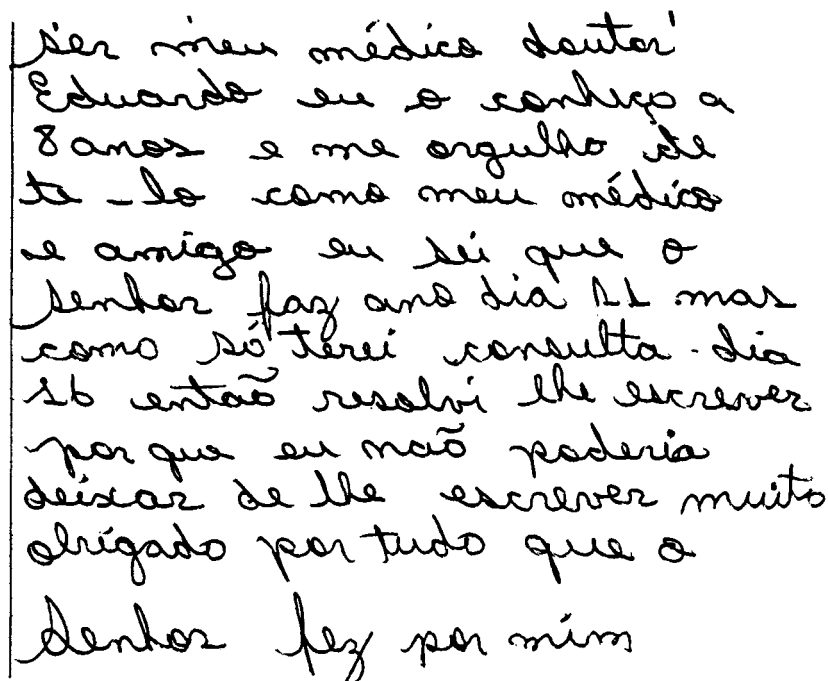 ser meu médico doutor
Eduardo eu o conheço a
8 anos e me orgulho de
te-lo como meu médico
e amigo eu sei que o
senhor faz ano dia 11 mas
como só terei consulta dia
16 então resolvi lhe escrever
por que eu não poderia
deixar de lhe escrever muito
obrigado por tudo que o
senhor fez por mim